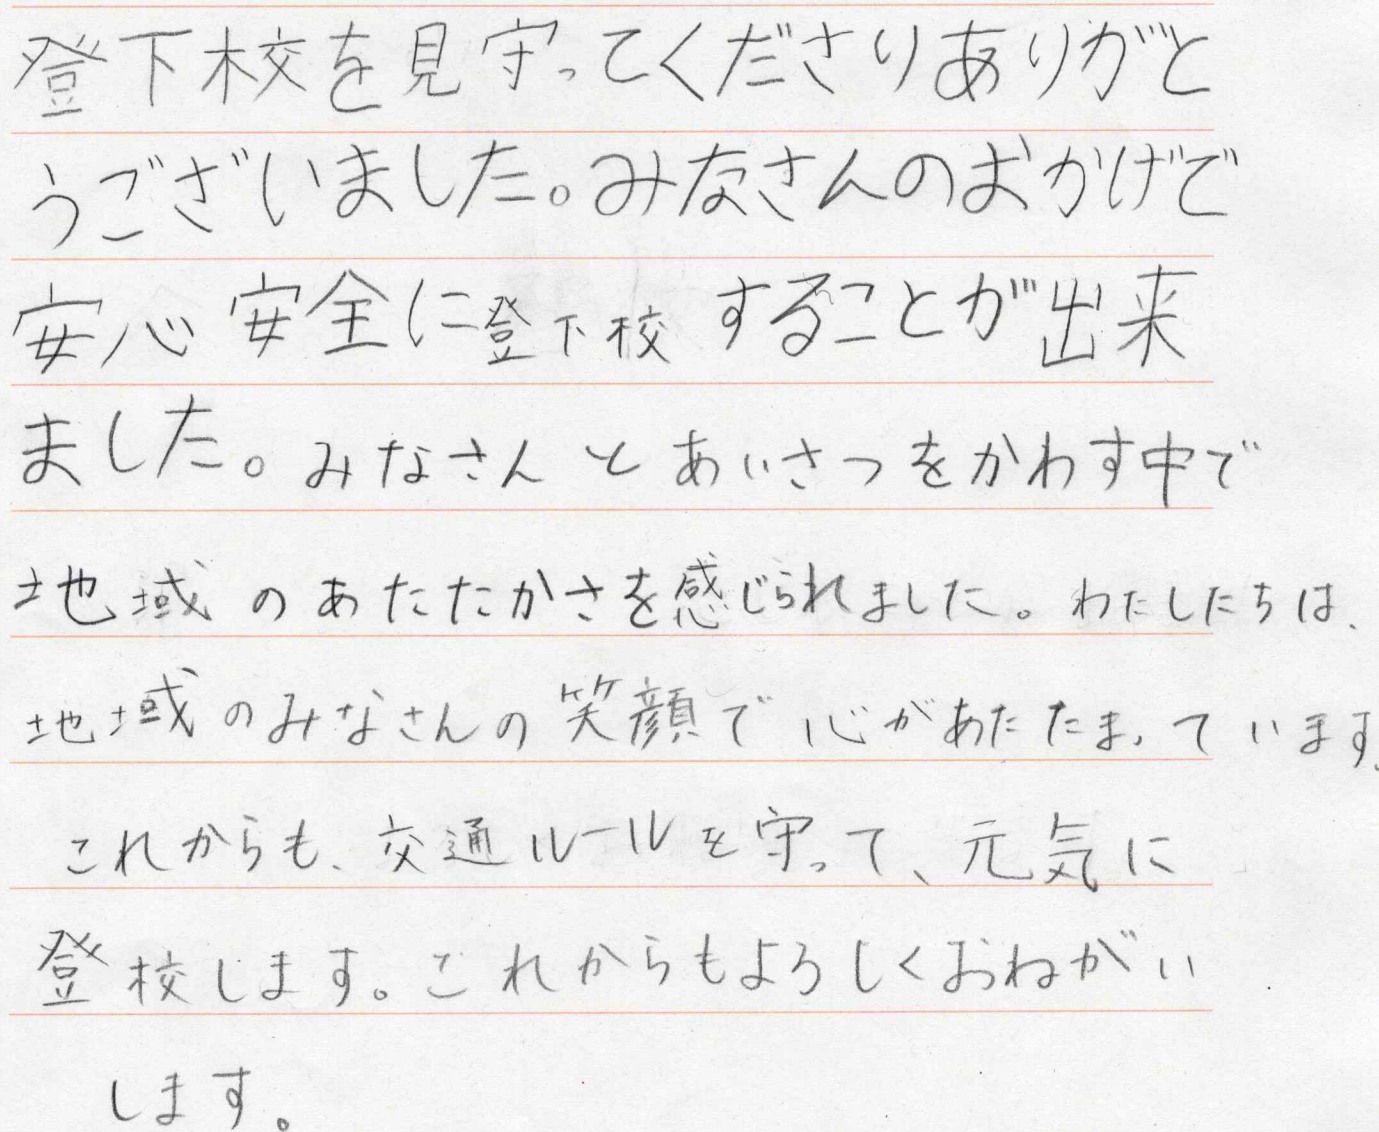 登下校を見守ってくださりありがと
うございました。みなさんのおかげで
安心安全に登下校することが出来
ました。みなさんとあいさつをかわす中で
地域のあたたかさを感じられました。わたしたちは、
地域のみなさんの笑顔で心があたたまっています。
これからも、交通ルールを守って、元気に
登校します。これからもよろしくおねがい
します。